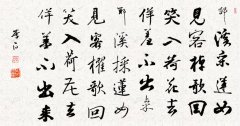 耶溪采蓮女
見客棹歌回
笑入荷花去
佯羞不出來
耶溪採蓮女
見客棹歌回
笑入荷花去
佯羞不出來